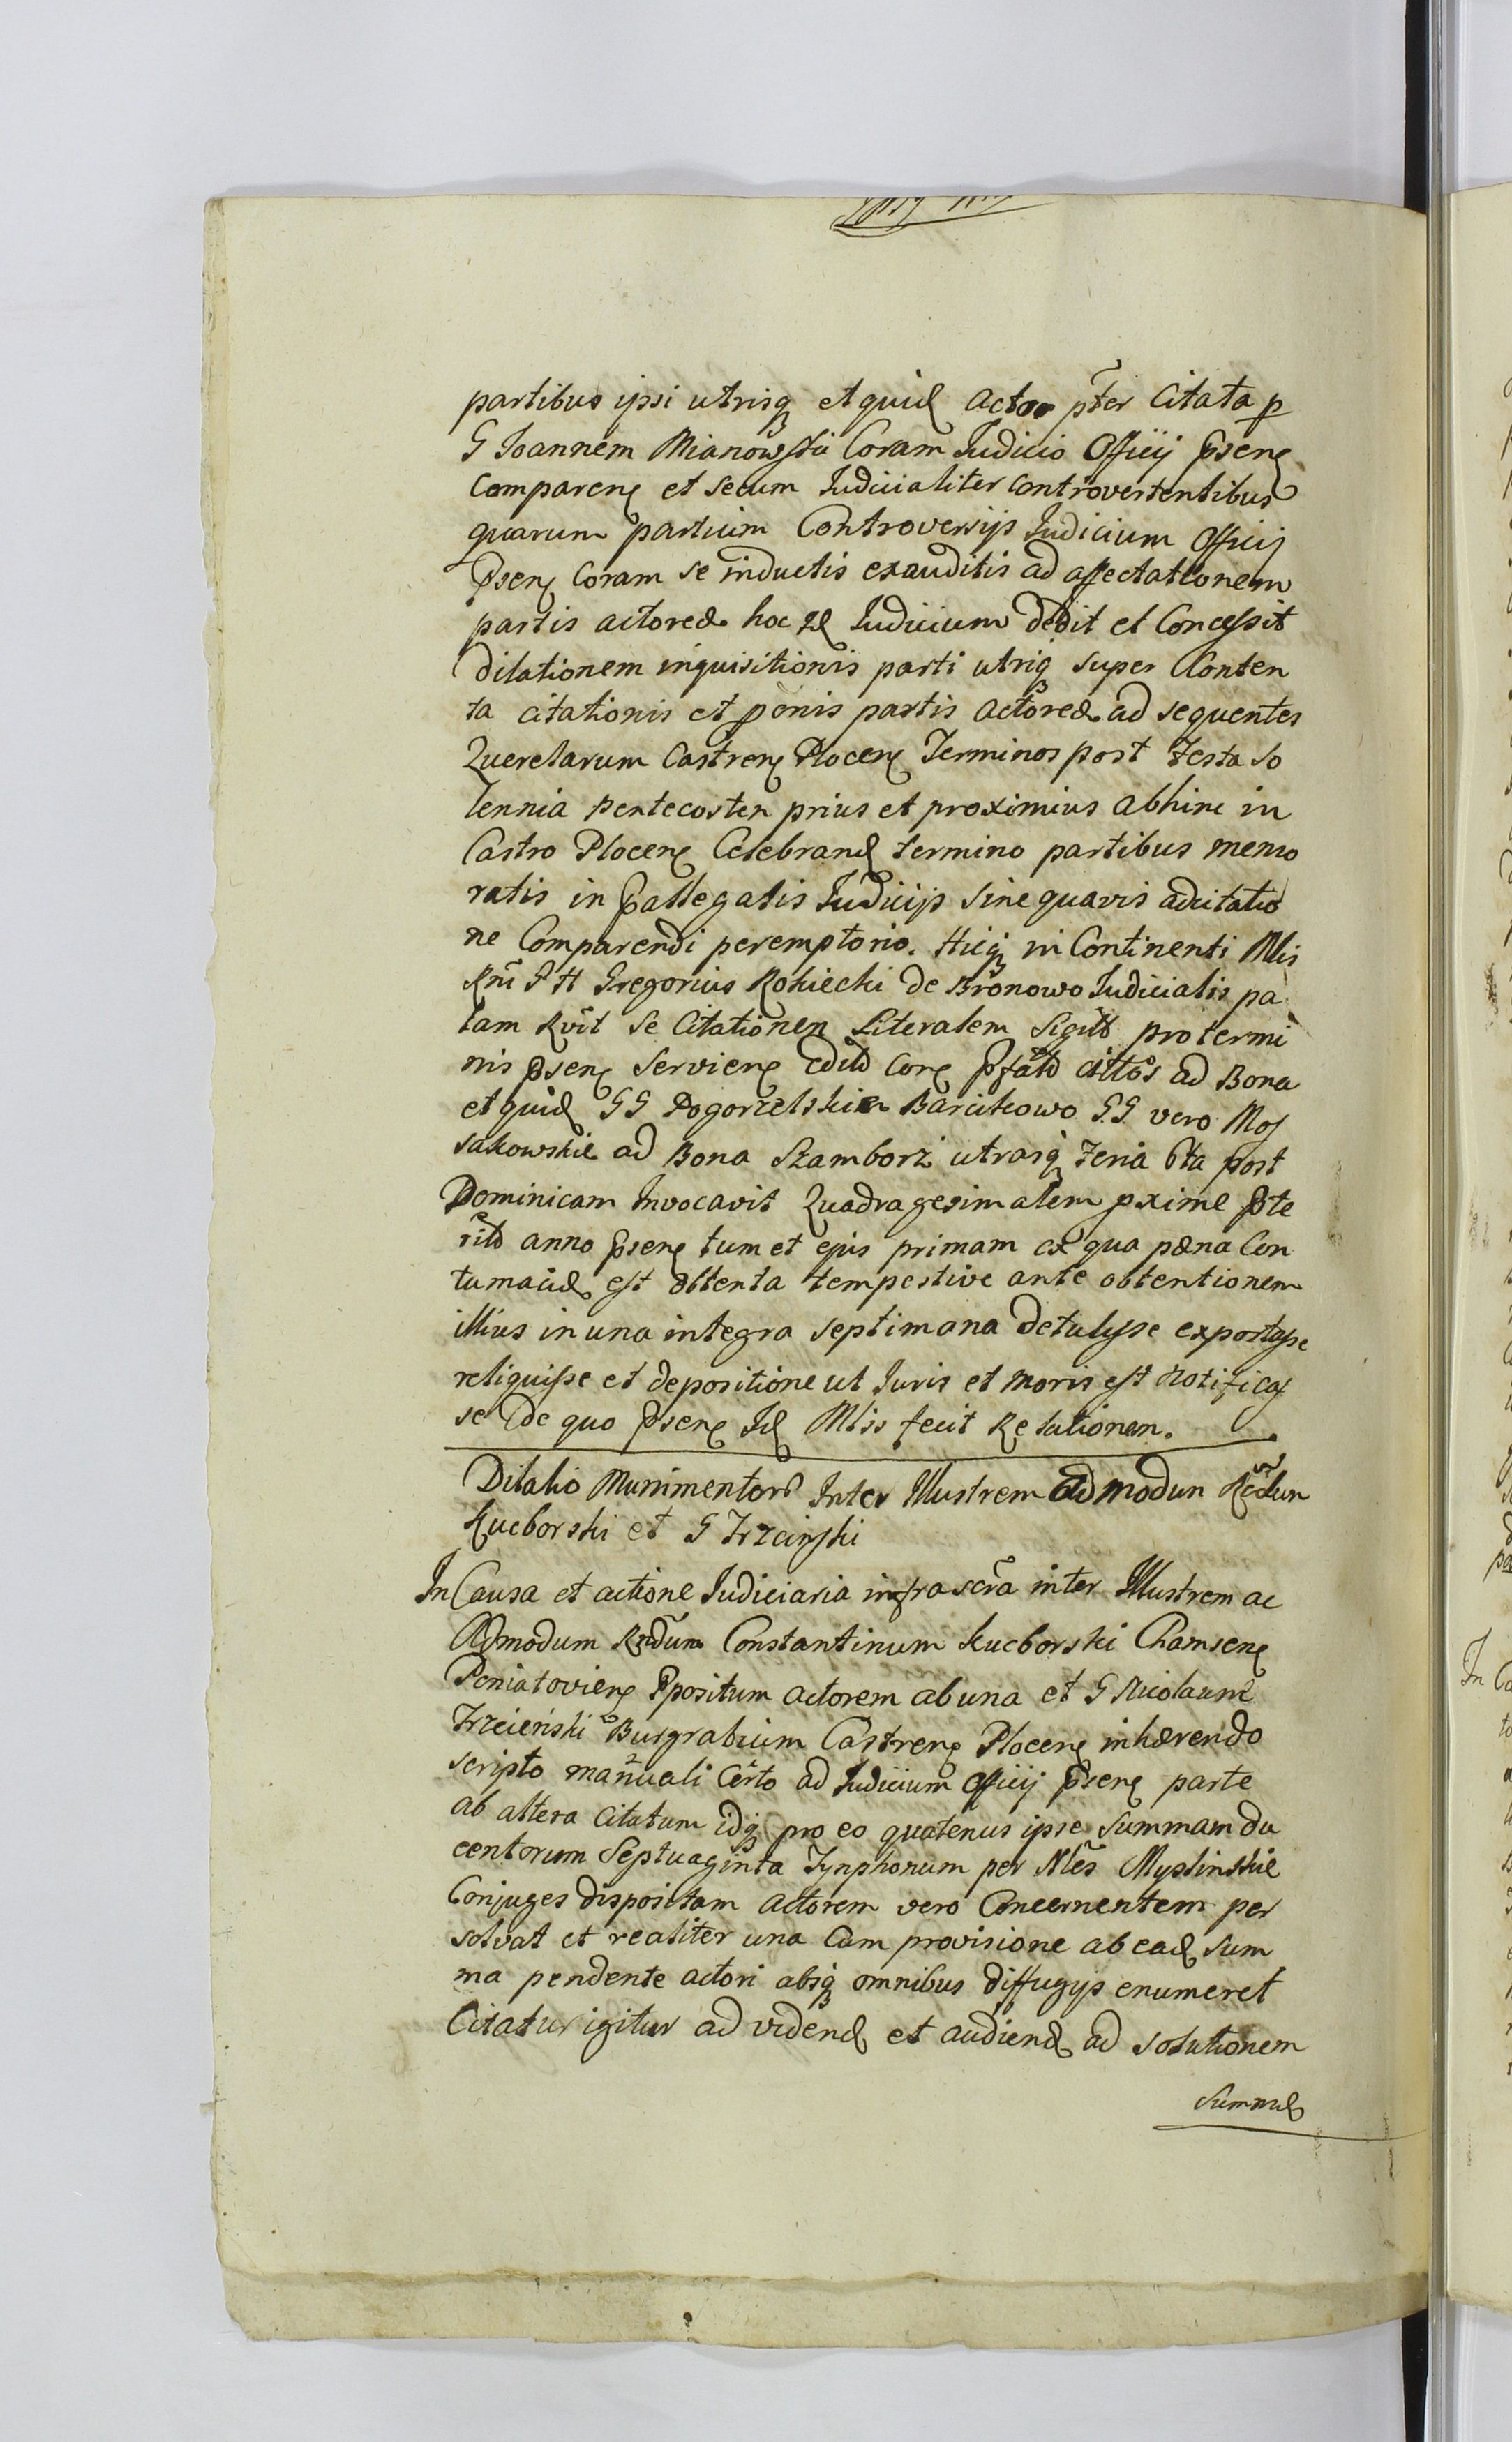 partibus ipsi utrisq et quid Actor pter Citata p
G Joannem Mianowski Coram Judicio Officij Psen
Comparen et secum Judicialiter Controvertentibus
quarum partium Controversijs Judicium Officij
Psen Coram se inductis exauditis ad affectationem
partis actoreæ hoc id Judicium dedit et Concessit
Dilationem inquisitionis parti utriq super Conten
ta citationis et penis partis Actoreæ ad sequentes
Querelarum Castren Plocen Terminos post Festa So
lennia Pentecosten prius et proximius abhinc in
Castro Plocen Celebrand termino partibus memo
ratis in Pallegatis Judicijs sine quavis adcitatio
ne Comparendi peremptorio. Hicq in Continenti Mlis
Rni P H Gregorius Rokicki de Bronowo Judicialis pa
lam Rvit se Citationem Literalem Sigill pro termi
nis Psen Servien edit Cor Pfato cittos ad Bona
et quid GG Pogorzelskie Barcikowo GG vero Mos
sakowskie ad Bona Szamborz utrasq Feria 6ta post
Dominicam Invocavit Quadragesimalem pxime Pte
rito anno Psen tum et ejus primam ex qua pæna Con
tumaciæ est obtenta tempestive ante obtentionem
illius in una integra septimana detulisse exportasse
reliquisse et depositione ut Juris et moris est notificas
se De quo Psen Id Mliss fecit Relationem.
Dilatio Munimentor Inter Illustrem Admodum Rndum
Kucborski et G Trzcinski
In Causa et actione Judiciaria infrascra inter Illustrem ac
Admodum Rndum Constantinum Kucborski Chamscen
Poniatovien Ppositum actorem ab una et G Nicolaum
Trzcienski Burgrabium Castren Plocen inhærendo
scripto manuali Certo ad Judicium Officij Psen parte
ab altera Citatum idq pro eo quatenus ipse summam du
centorum Septuaginta Tynphorum per Nles Myslinskie
Conjuges dispositam actorem vero Concernentem per
solvat et realiter una Cum provisione ab ead sum
ma pendente actori absq omnibus diffugijs enumeret
Citatur igitur ad vidend et audiend ad solutionem
Summæ